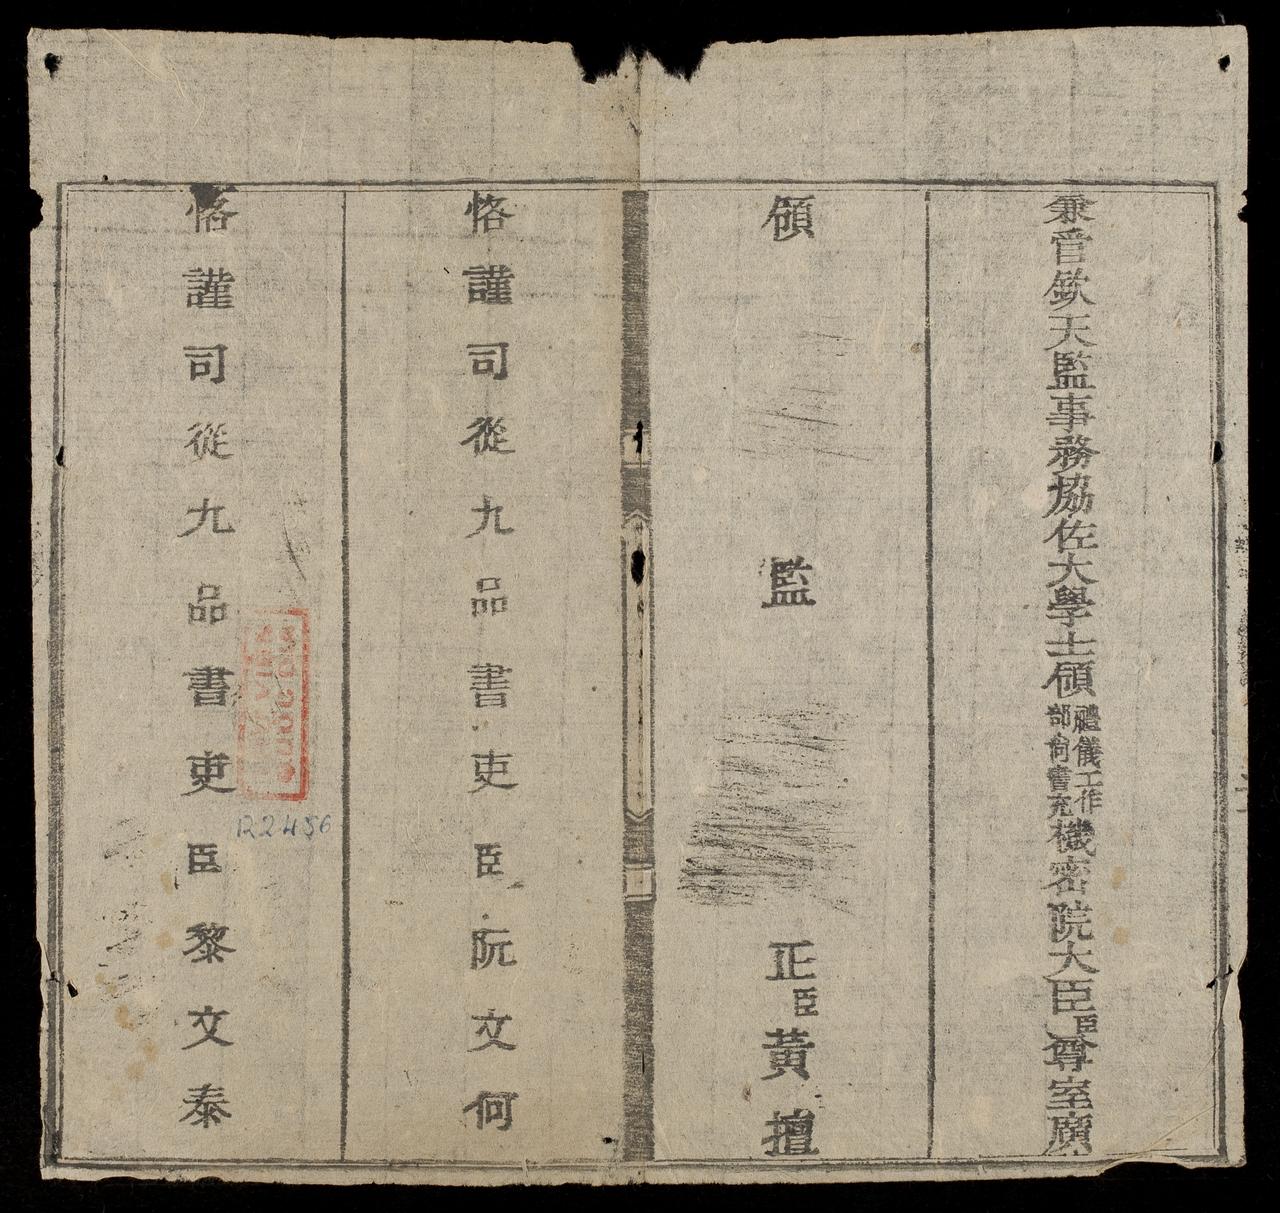 兼管欽天監事務協佐大學士領禮儀工作部尚書充機密院大臣臣尊室廣
領監正臣黃擅
恪謹司從九品書吏臣阮文何
恪謹司從九品書吏臣黎文泰
R2456